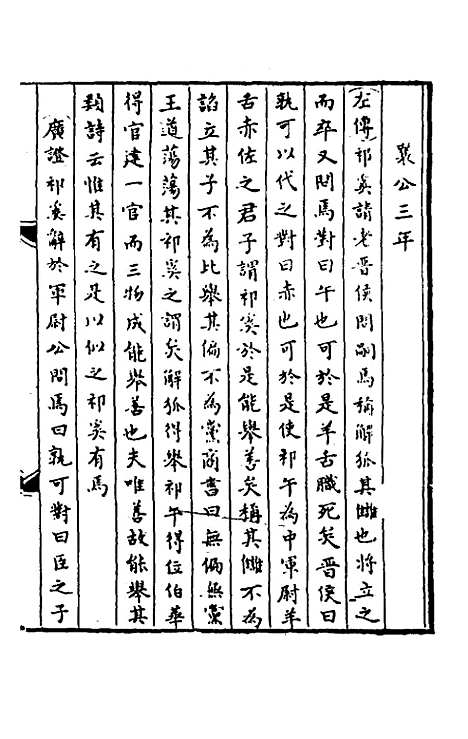 襄公三年
左傳祁奚請老晉侯問嗣焉稱解狐其讎也將立之
而卒又問焉對曰午也可於是羊舌職死矣晉侯曰
孰可以代之對曰赤也可於是使祁午為中軍尉羊
舌赤佐之君子謂祁奚於是能舉善矣稱其讎不為
諂立其子不為比舉其偏不為黨商書曰無偏無黨
王道蕩蕩其祁奚之謂矣解狐得舉祁午得位伯華
得官建一官而三物成能舉善也夫唯善故能舉其
類詩云惟其有之是以似之祁奚有焉
廣證祁奚辭於軍尉公問焉曰孰可對曰臣之子